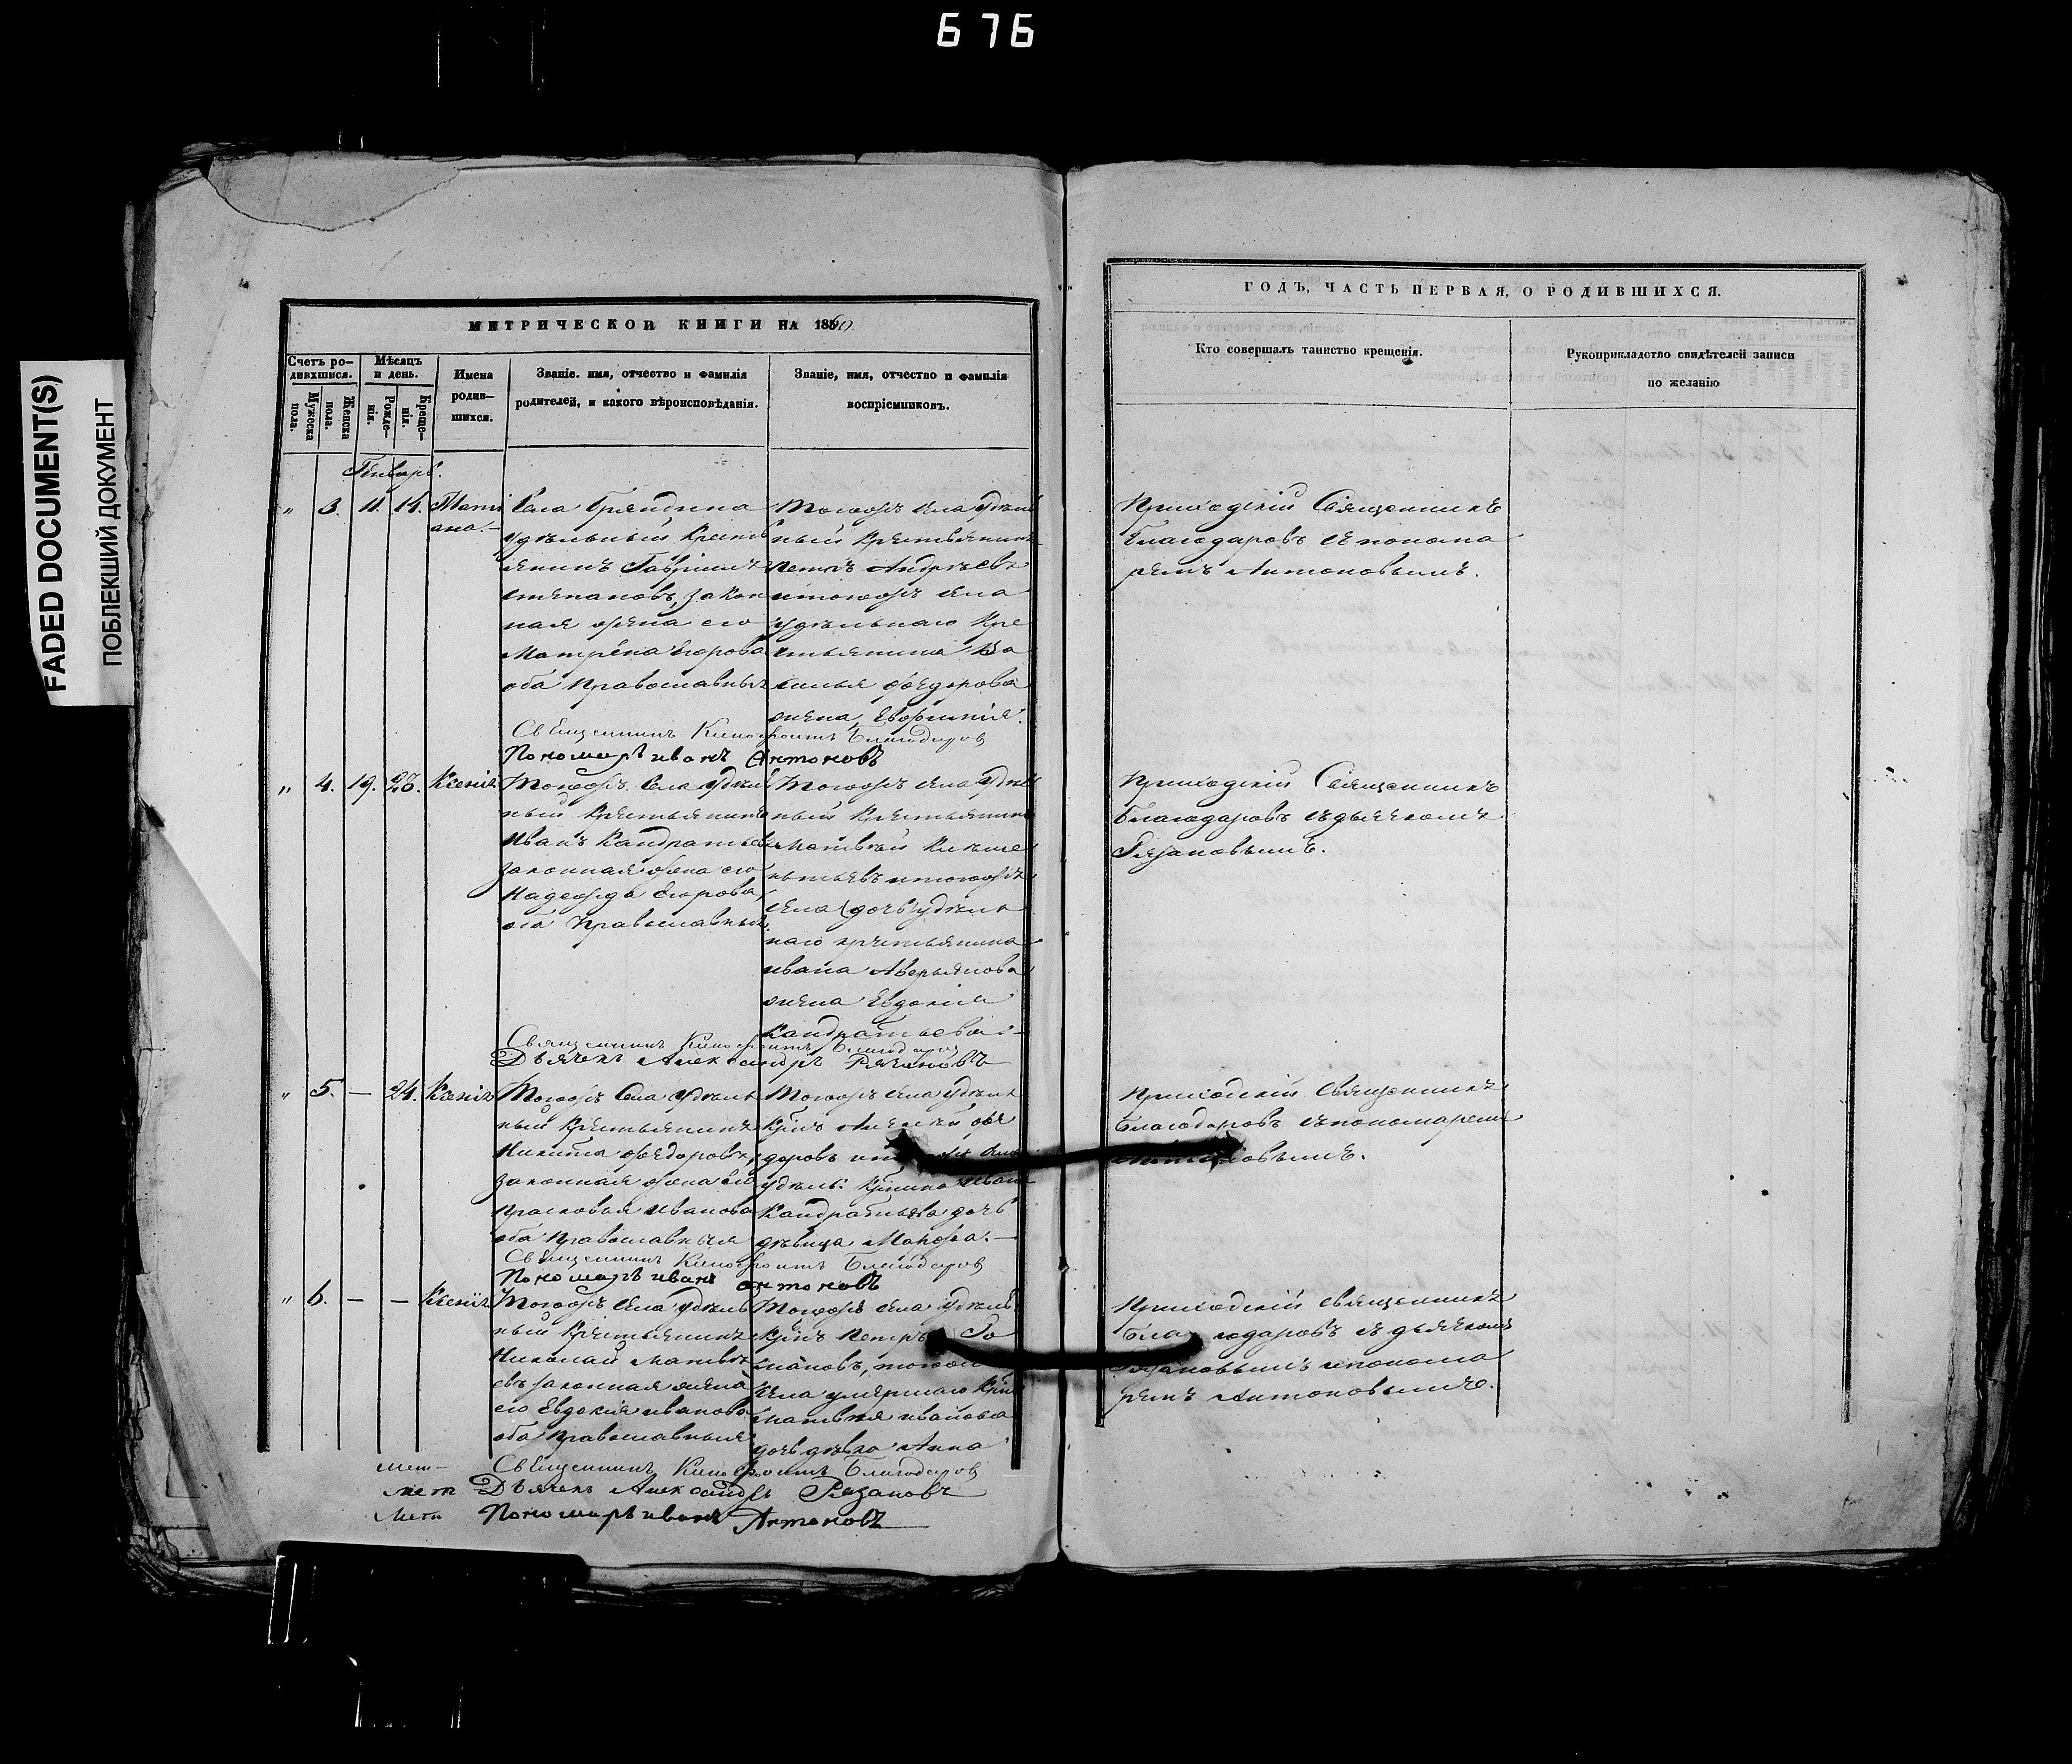 676
FADED DOCUMENT(S)
ПОБЛЕКШИЙ ДОКУМЕНТ
МЕТРИЧЕСКОЙ КНИГИ НА 1860.
Счетъ ро-
дившихся.
Мужеска
пола.
Женска
пола.
Мѣсяцъ
и день.
Рожде-
нія.
Креще-
нія.
Имена
родив-
шихся.
Званіе, имя, отчество и фамилія
родителей, и какого вѣроисповѣданія.
Званіе, имя, отчество и фамилія
воспріемниковъ.
Генварь.
„ 3. 11. 14. Тати
ана.
Села
удѣльный Крестья
янинъ Гавріилъ
Степановъ, Закон
ная жена его
Матрена Егорова
оба Православныя
Тогожъ села удѣль
ный Крестьянинъ
Петръ Андрѣевъ
итогожъ села
удѣльнаго Кре
стьянина Ва
силья Федорова
жена Евфимія.
Священникъ Благодаровъ
Пономарь иванъ Антоновъ
„ 4. 19. 23. Ксенія
Тогожъ Села Удѣль
ный Крестьянинъ
Иванъ Кандратьевъ
законная жена его
Надежда Егорова,
оба Православныя
Тогожъ села Удѣль
ный Крестьянинъ
Матвѣй
итогожъ
села (дочь) удѣль
наго крестьянина
ивана Аверьянова
жена Евдокія
Кандратьева
Священникъ Благодаровъ
Дьячекъ Александръ Рязановъ
„ 5. — 24. Ксенія
Тогожъ Села Удѣль
ный Крестьянинъ
Никита Федоровъ,
законная жена его
Прасковья Иванова
оба Православныя
Тогожъ села Удѣль
Крнъ Алексѣй Фе
доровъ
удѣль: Крнина Ивана
Кандратьева дочь
дѣвица
Священникъ Благодаровъ
Пономарь иванъ антоновъ
„ 6. — — Ксенія
Тогожъ Села Удѣль
ный Крестьянинъ
Николай Матвѣ
евъ законная жена
его Евдокія иванова
оба Православныя
Тогожъ села Удѣль
Крнъ Петръ Ро
мановъ, тогож
села умершаго Крна
Матвѣя иванова
дочь дѣвка Анна
Священникъ Благодаровъ
Дьячекъ Александръ Рязановъ
Пономарь иванъ Антоновъ
ГОДЪ, ЧАСТЬ ПЕРВАЯ, О РОДИВШИХСЯ.
Кто совершалъ таинство крещенія.
Рукоприкладство свидѣтелей записи
по желанію
Приходскій Священникъ
Благодаровъ съ понома
ремъ Антоновымъ.
Приходскій Священникъ
Благодаровъ съ дьячкомъ
Рязановымъ.
Приходскій Священникъ
Благодаровъ съ пономаремъ
Антоновымъ.
Приходскій священникъ
Благодаровъ съ дьячкомъ
Рязановымъ и понома
ремъ Антоновымъ.